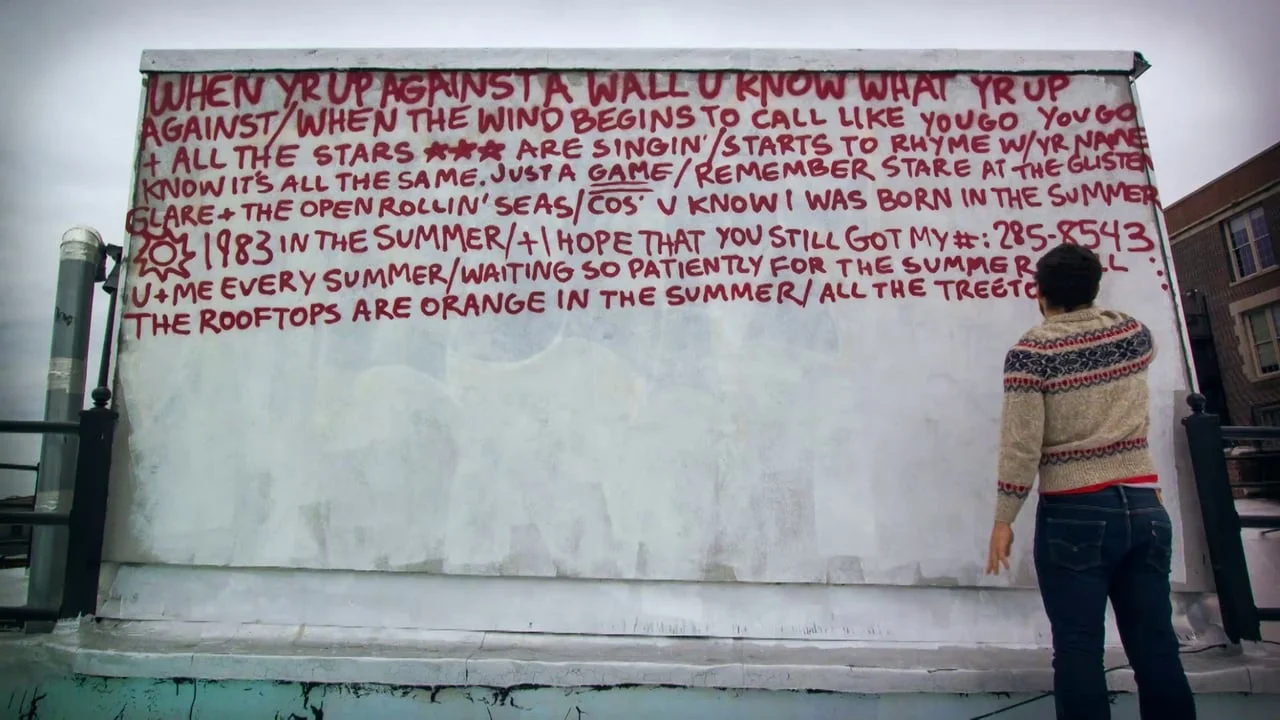 WHEN YR UP AGAINST A WALL U KNOW WHAT YR UP
AGAINST/WHEN THE WIND BEGINS TO CALL LIKE YOU GO YOU GO
+ ALL THE STARS ★★★ ARE SINGIN'/STARTS TO RHYME W/YR NAME
KNOW IT'S ALL THE SAME. JUST A GAME/REMEMBER STARE AT THE GLISTEN
GLARE + THE OPEN ROLLIN' SEAS/COS' U KNOW I WAS BORN IN THE SUMMER
1983 IN THE SUMMER/+ I HOPE THAT YOU STILL GOT MY #: 285-8543
U+ME EVERY SUMMER/WAITING SO PATIENTLY FOR THE SUMMER
THE ROOFTOPS ARE ORANGE IN THE SUMMER/ALL THE